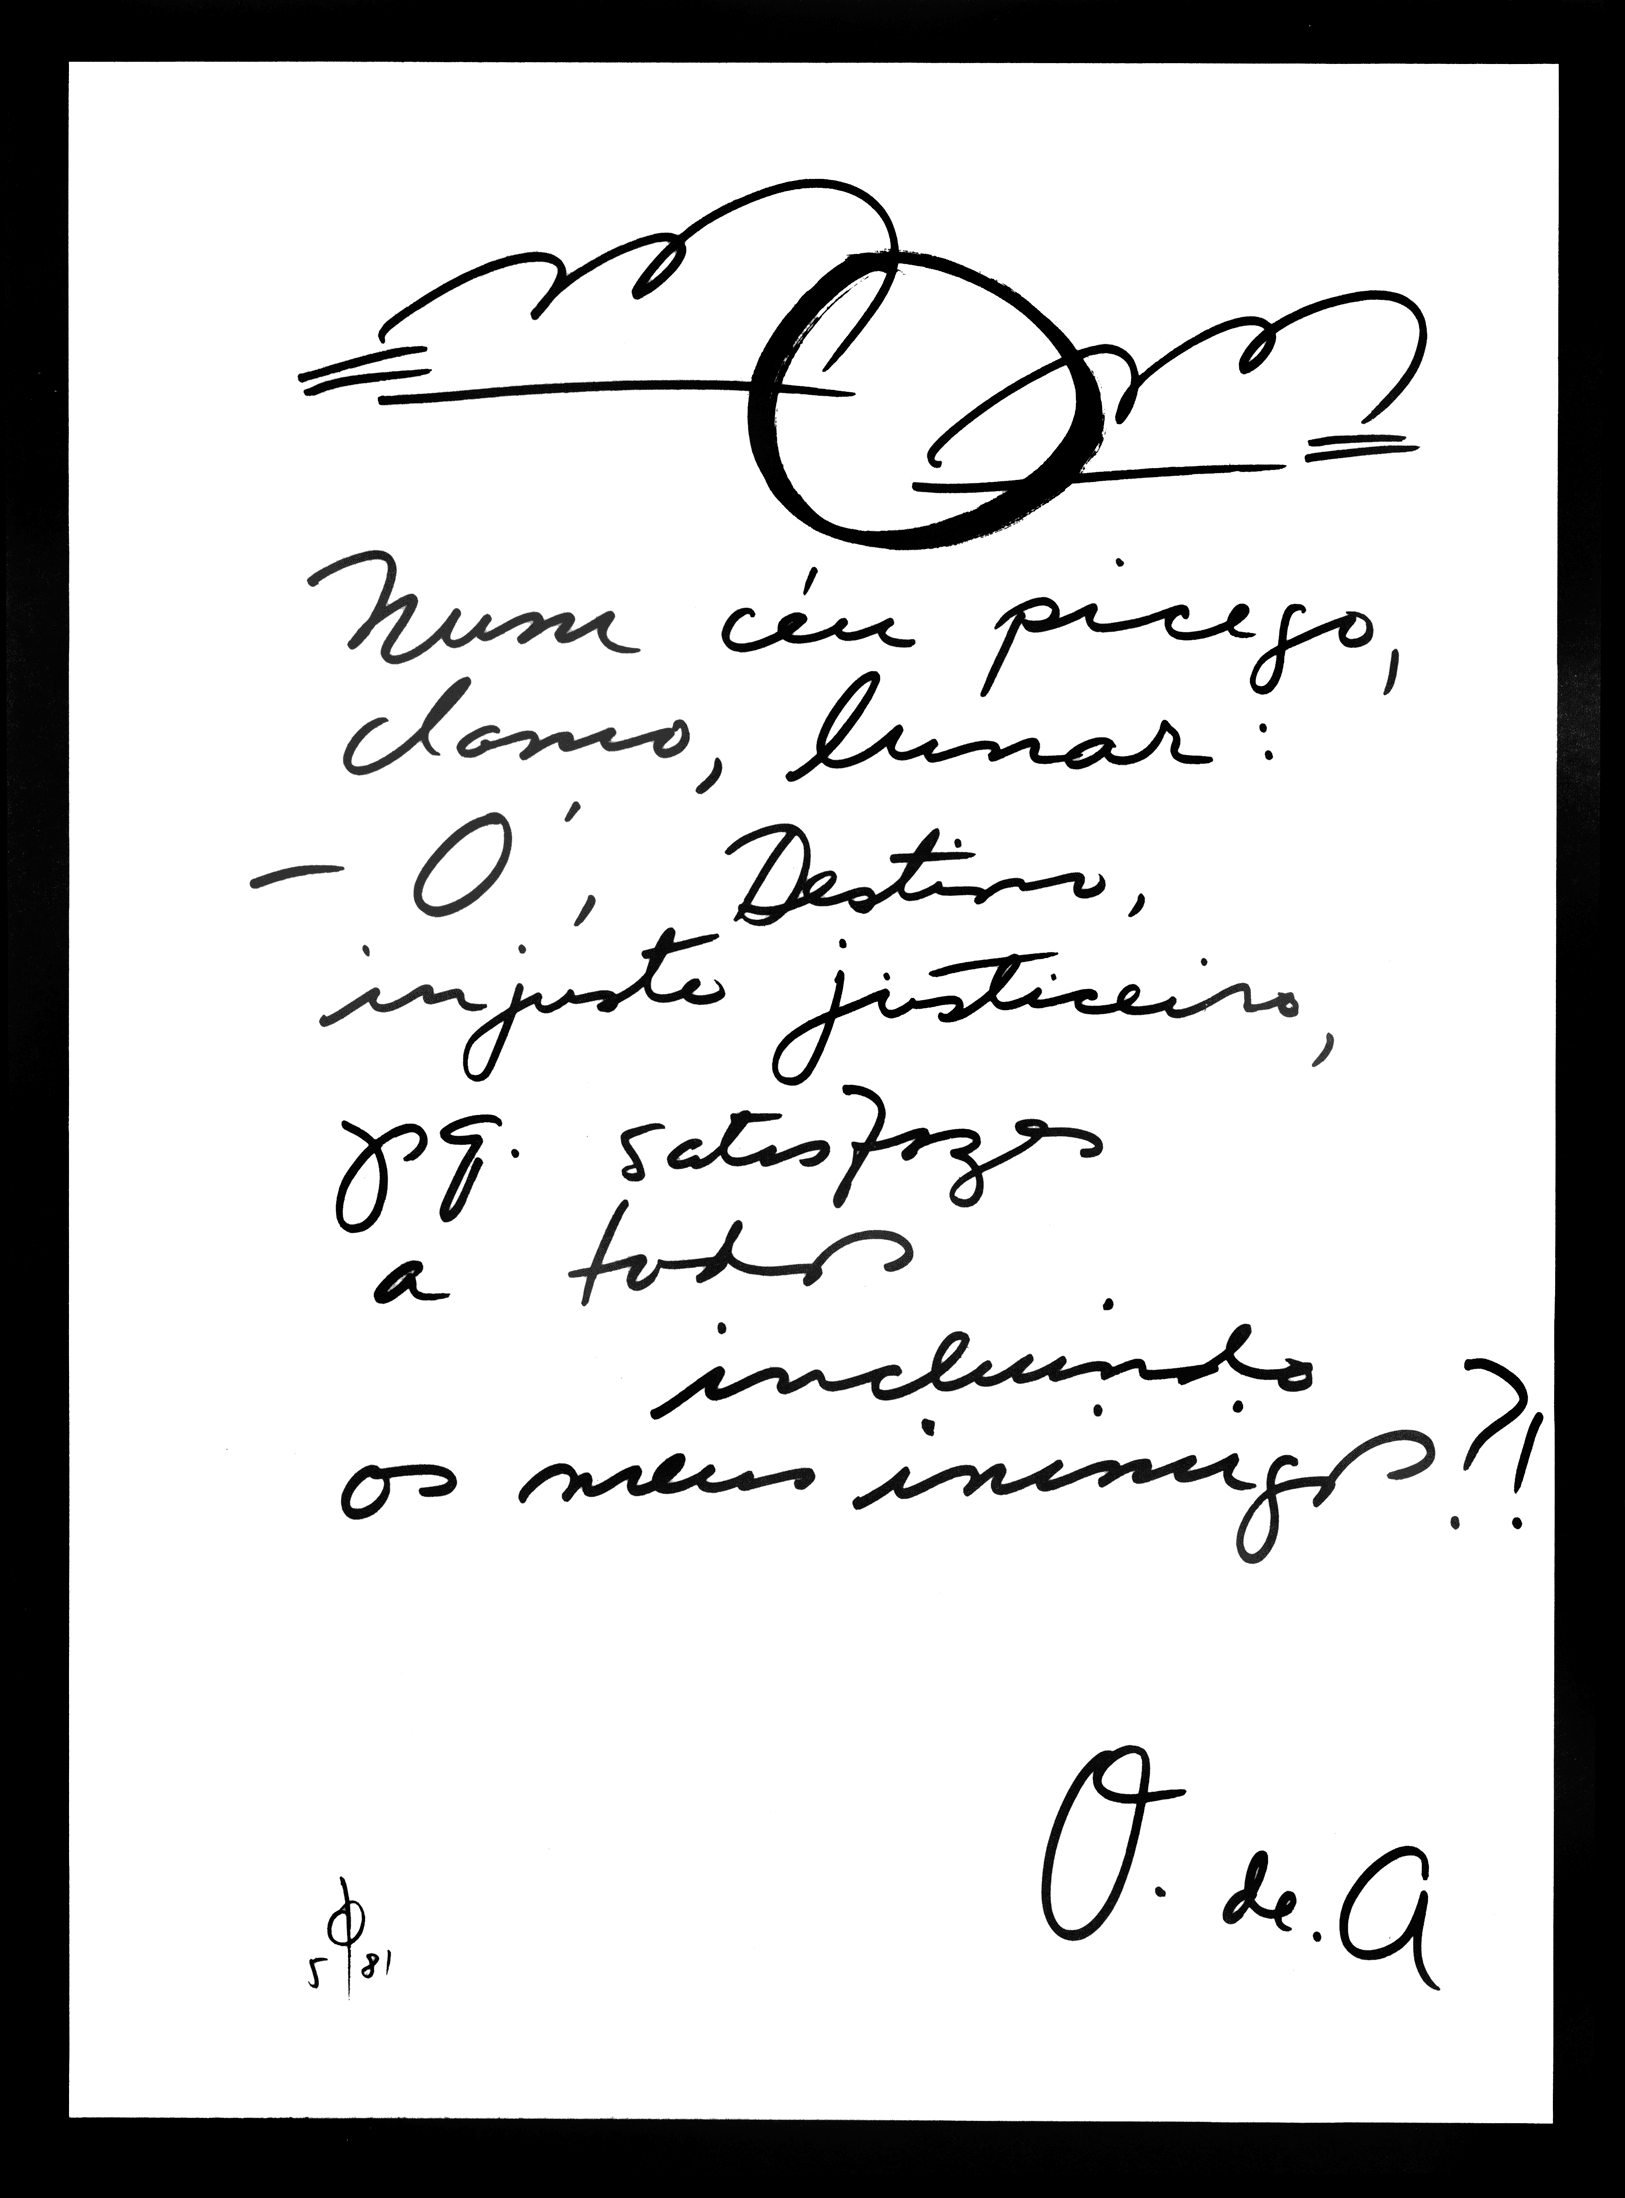 Num céu picego,
clamo, lunar:
— Ó, Destino,
injusto justiceiro,
pq. satisfazes
a todos
incluindo
os meus inimigos?!
O. de. A
5 81